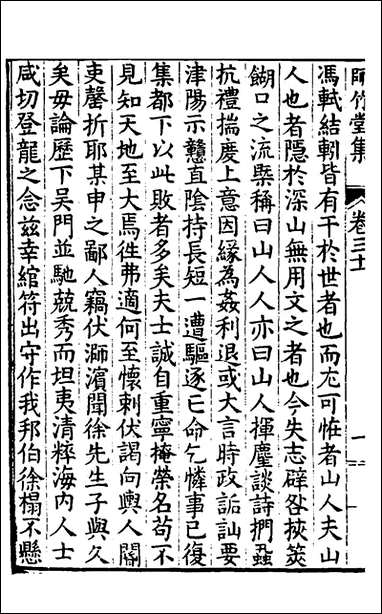 師竹堂集
卷三十
一
馮軾結靷皆有干於世者也而尤可恠者山人夫山
人也者隱於深山無用文之者也今失志辟咎挾筴
餬口之流槩稱曰山人人亦曰山人揮麈談詩捫蝨
抗禮揣慶上意因緣為姦利退或大言時政詬訕要
津陽示戇直陰持長短一遭驅逐亡命乞憐事已復
集都下以此敗者多矣夫士誠自重寧掩榮名苟不
見知天地至大焉徃弗適何至懷刺伏謁向輿人閽
吏罄折耶某申之鄙人竊伏溮濱聞徐先生子與久
矣毋論歷下吳門並馳兢秀而坦夷清粹海内人士
咸切登龍之念兹幸綰符出守作我邦伯徐榻不懸